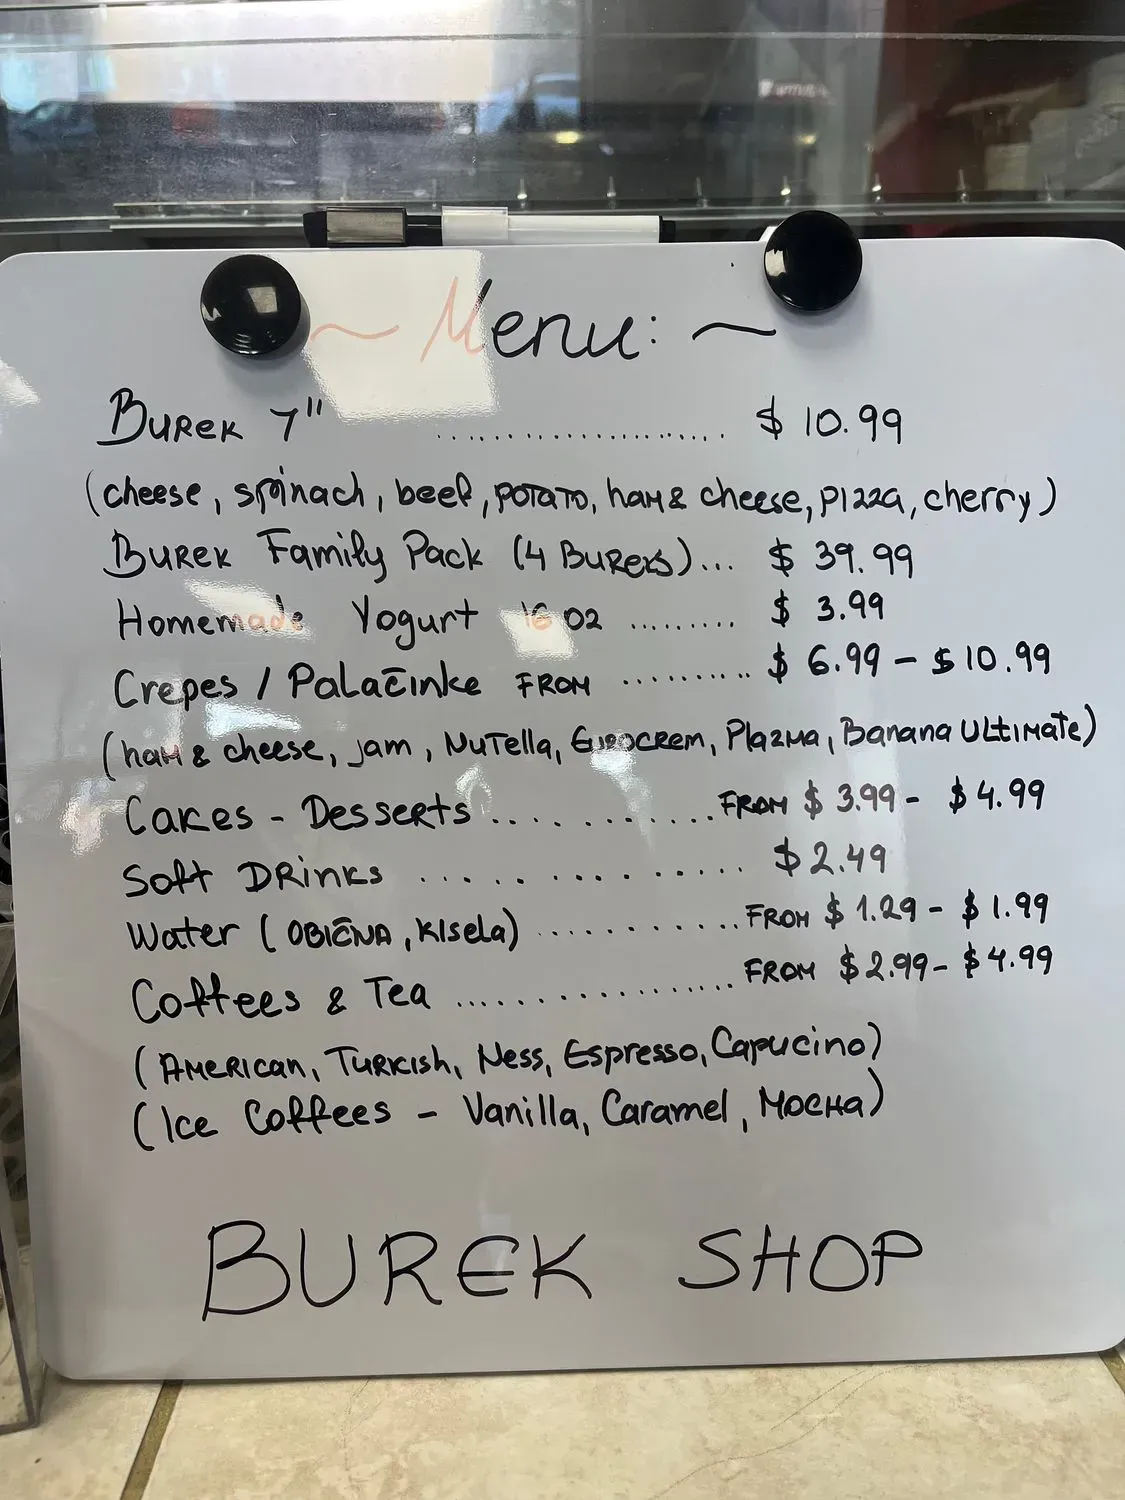 ~ Menu: ~
Burek 7" ..................... $ 10.99
(cheese, spinach, beef, potato, ham & cheese, pizza, cherry)
Burek Family Pack (4 Bureks)... $ 39.99
Homemade Yogurt 16 oz ......... $ 3.99
Crepes / Palačinke from .......... $ 6.99 - $ 10.99
(ham & cheese, jam, Nutella, Eurocrem, Plazma, Banana Ultimate)
Cakes - Desserts ............ from $ 3.99 - $ 4.99
Soft Drinks ............... $ 2.49
Water (obična, kisela) ............ from $ 1.29 - $ 1.99
Coffees & Tea ................. from $ 2.99 - $ 4.99
(American, Turkish, Ness, Espresso, Capucino)
(Ice Coffees - Vanilla, Caramel, Mocha)
BUREK SHOP